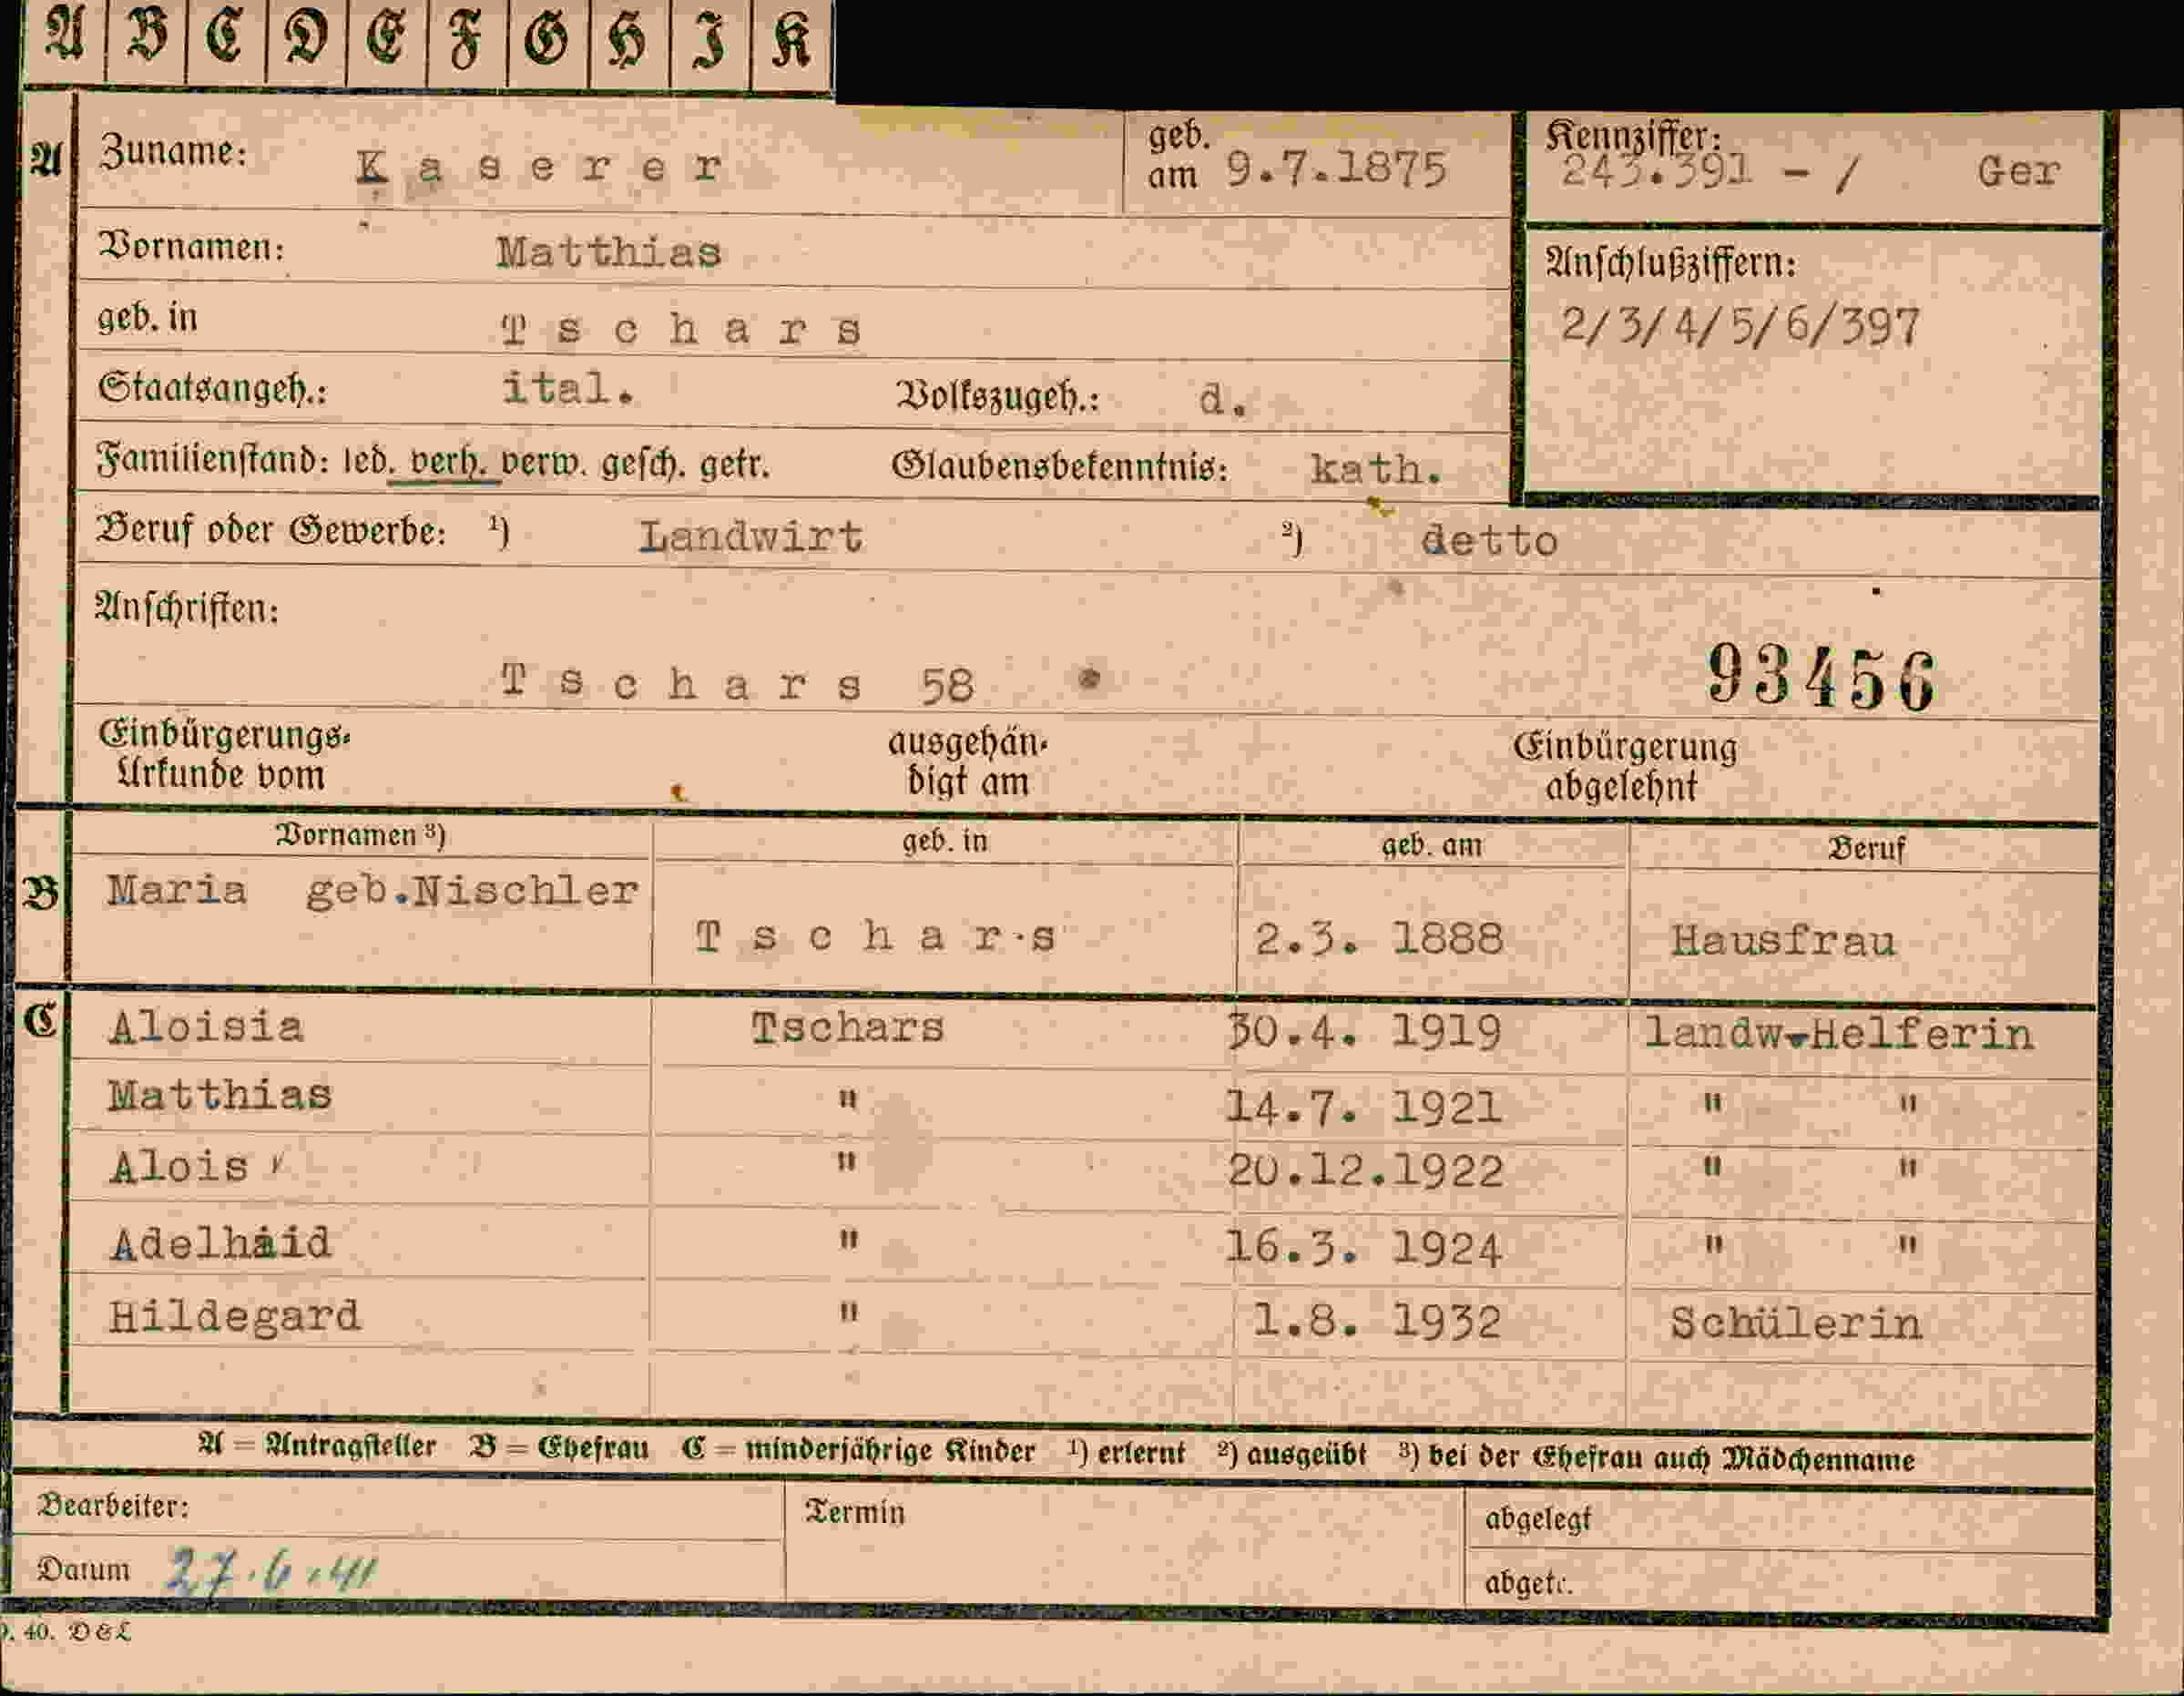 A B C D E F G H I K
A Zuname: Kaserer geb. am 9.7.1875 Kennziffer: 243.391 - / Ger
Vornamen: Matthias Anschlußziffern:
geb. in Tschars 2/3/4/5/6/397
Staatsangeh.: ital. Volkszugeh.: d.
Familienstand: led. verh. verw. gesch. getr. Glaubensbekenntnis: kath.
Beruf oder Gewerbe: ¹) Landwirt ²) detto
Anschriften:
Tschars 58 93456
Einbürgerungs- ausgehän- Einbürgerung
Urkunde vom digt am abgelehnt
Vornamen ³) geb. in geb. am Beruf
B Maria geb.Nischler
Tschars 2.3. 1888 Hausfrau
C Aloisia Tschars 30.4. 1919 landw.Helferin
Matthias " 14.7. 1921 " "
Alois " 20.12.1922 " "
Adelhaid " 16.3. 1924 " "
Hildegard " 1.8. 1932 Schülerin
A = Antragsteller B = Ehefrau C = minderjährige Kinder ¹) erlernt ²) ausgeübt ³) bei der Ehefrau auch Mädchenname
Bearbeiter: Termin abgelegt
Datum 27.6.41 abgetr.
40. D&L